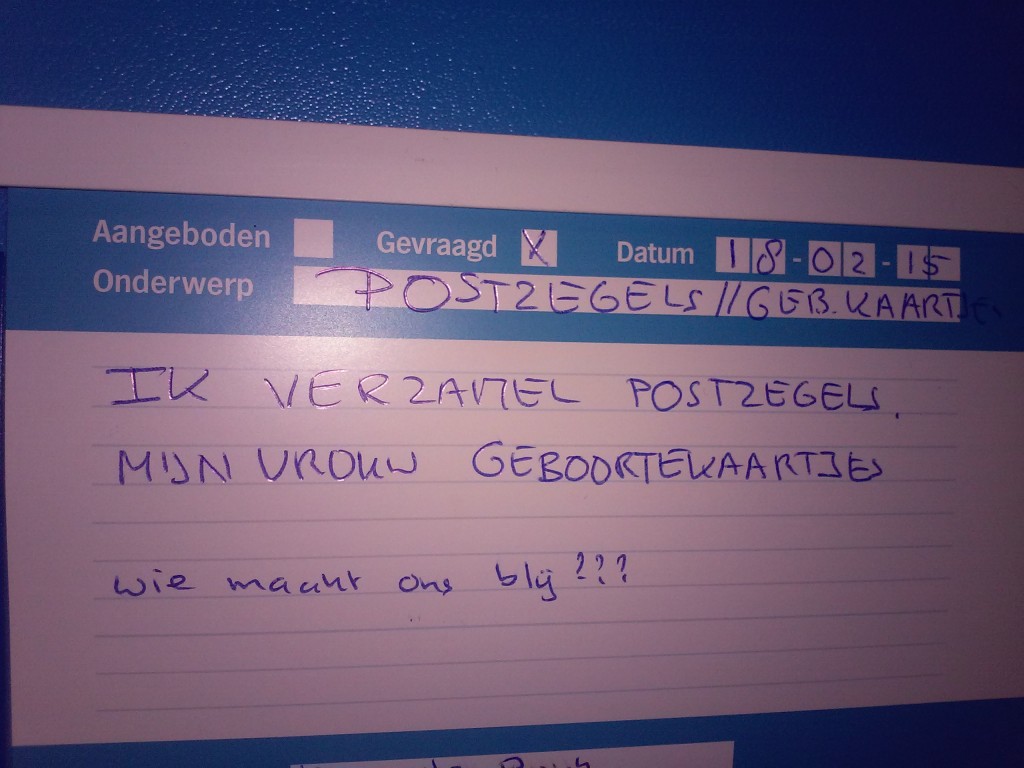 Aangeboden Gevraagd X Datum 18-02-15
Onderwerp POSTZEGELS//GEB.KAARTJES
IK VERZAMEL POSTZEGELS.
MIJN VROUW GEBOORTEKAARTJES
wie maakt ons blij ???